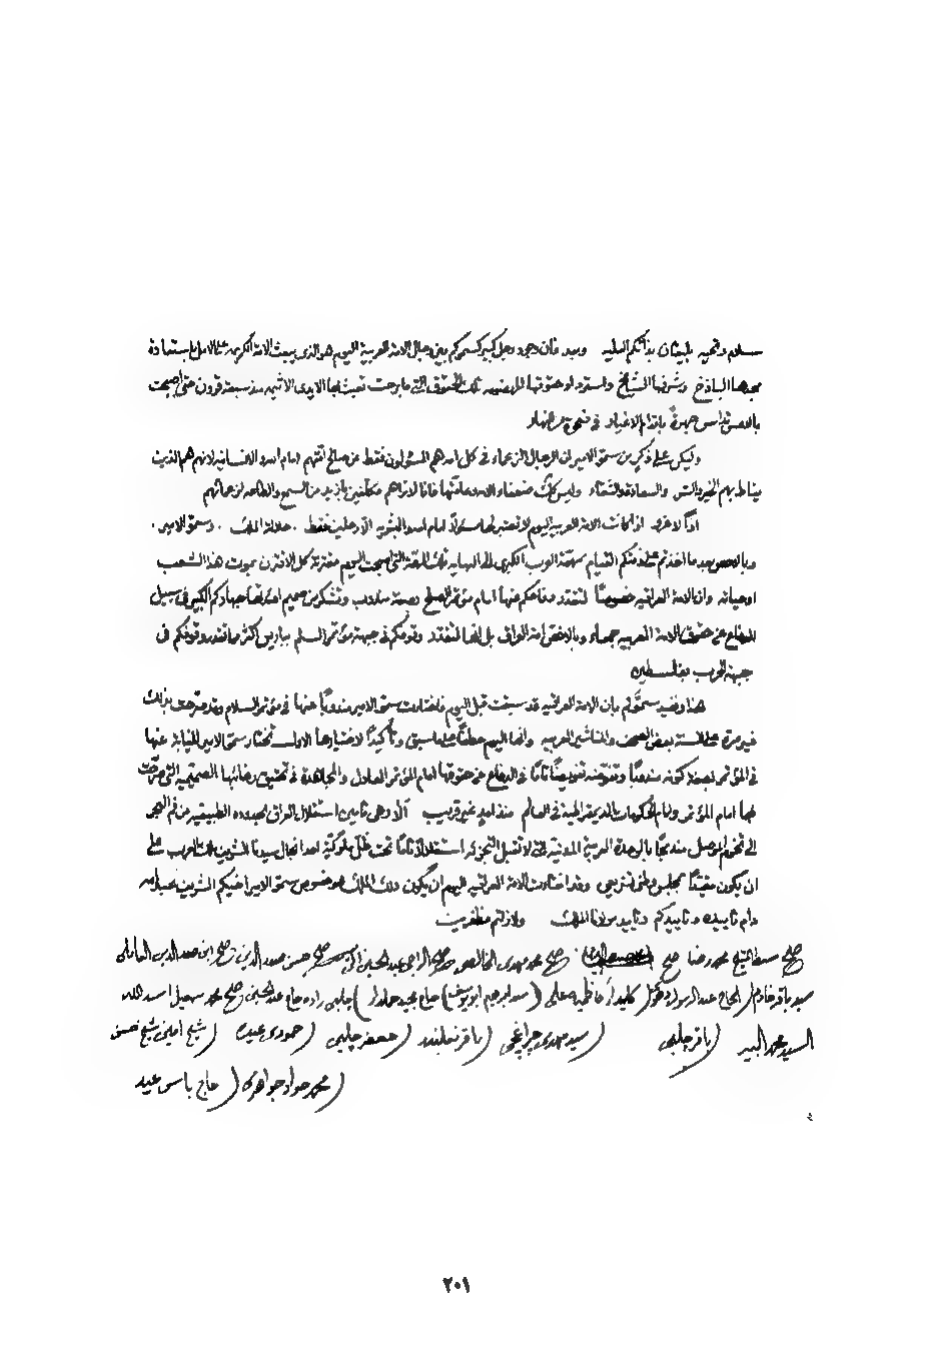 سلام وتحية يليقان بذاتكم العلية وبعد فان وجود رجل كبير كسموكم بين رجال الامة العربية اليوم هو الذي يبعث الامة الكريمة على الامل باستعادة
مجدها الباذخ وشرفها الشامخ واسترداد حقوقها المهضومة تلك الحقوق التي ما برحت تعبث بها الايدي الاثيمة منذ سبعة قرون حتى اصبحت
بالامس تداس جهرة باقدام الاغيار في
وليكن على ذكر من سمو الامير ان الرجال الزعماء في كل امة هم المسؤلون فقط عن صالح امتهم امام الانسانية لانهم هم الذين
يناط بهم الخير والشر والسعادة والشقاء وليس كذلك ضعفاء الامة وعامتها فانا لا نراهم مكلفين بازيد من السمع والطاعة لزعمائهم
اذا كانت الامة العربية اليوم لا تعتبر مسؤلا امام البشرية الا رجلين فقط . جلالة الملك . وسمو الامير .
وبالاخص بعد ما اخذتم على ذمتكم القيام بمهمة العرب الكبرى الى النهاية تلك المهمة التي اصبحت اليوم مقترنة كل الاقتران بموت هذا الشعب
او حياته وان الامة العراقية خصوصا لتقدر دفاعكم عنها امام مؤتمر الصلح وتشكر من صميم جهادكم الكبير في سبيل
الدفاع عن حقوق الامة العربية جمعاء وبالاخص امة العراق بل انها لتعتقد وقوفكم في جبهة مؤتمر السلم بباريس اكثر مما تقدر وقوفكم في
جبهة الحرب بفلسطين
هذا ونفيد سموكم بان الامة العراقية قد سبقت قبل اليوم فاختارت سمو الامير مندوبا عنها في مؤتمر السلام وقد صرحت بذلك
غير مرة على السنة بعض الصحف والمناشير العربية وانها اليوم عطفا على ما سبق وتأكيدا لاختيارها الاول تختار سمو الامير للنيابة عنها
في المؤتمر بصفة كونه مندوبا وتفوضه تفويضا تاما في الدفاع عن حقوقها امام المؤتمر العادل والمجاهدة في تحقيق رغائبها الصميمية التي صرحت
بها امام المؤتمر وامام الحكومات الديمقراطية في العالم منذ امد غير قريب ألا وهي تأمين استقلال العراق بحدوده الطبيعية من فم البحر
الى تخوم الموصل مندمجا بالوحدة العربية التي لا تقبل التجزئة استقلالا تاما تحت ظل ملوكية احد انجال سيدنا الشريف ملك العرب على
ان يكون مقيدا بمجلس وطني تشريعي وقد اختارت الامة العراقية اليوم ان يكون ذلك الملك هو خصوص سمو الامير اخيكم الشريف عبدالله
دام تاييده وتاييدكم وتاييد مولانا الملك ولازلتم مظفرين
صح الشيخ محمد رضا صح صح محمد مهدي الخالصي صح الراجي عبد الحسين صح حسن صدر الدين صح ابن صدر الدين العاملي
سيد باقر خادم ( الحاج عبد الرسول كليدار كاظمية علي ( سيد ابراهيم ابو يوسف ) حاج مجيد ( چلبي زاده حاج عبد الحسين صح محمد اسد الله
السيد محمد ( باقر چلبي ( سيد مهدي چراغچي ( باقر ( جعفر چلبي ( حمودي عبيده ( شيخ امين شيخ محسن
( محمد جواد جواهري ( حاج ياسين عبد
٤
٢٠١